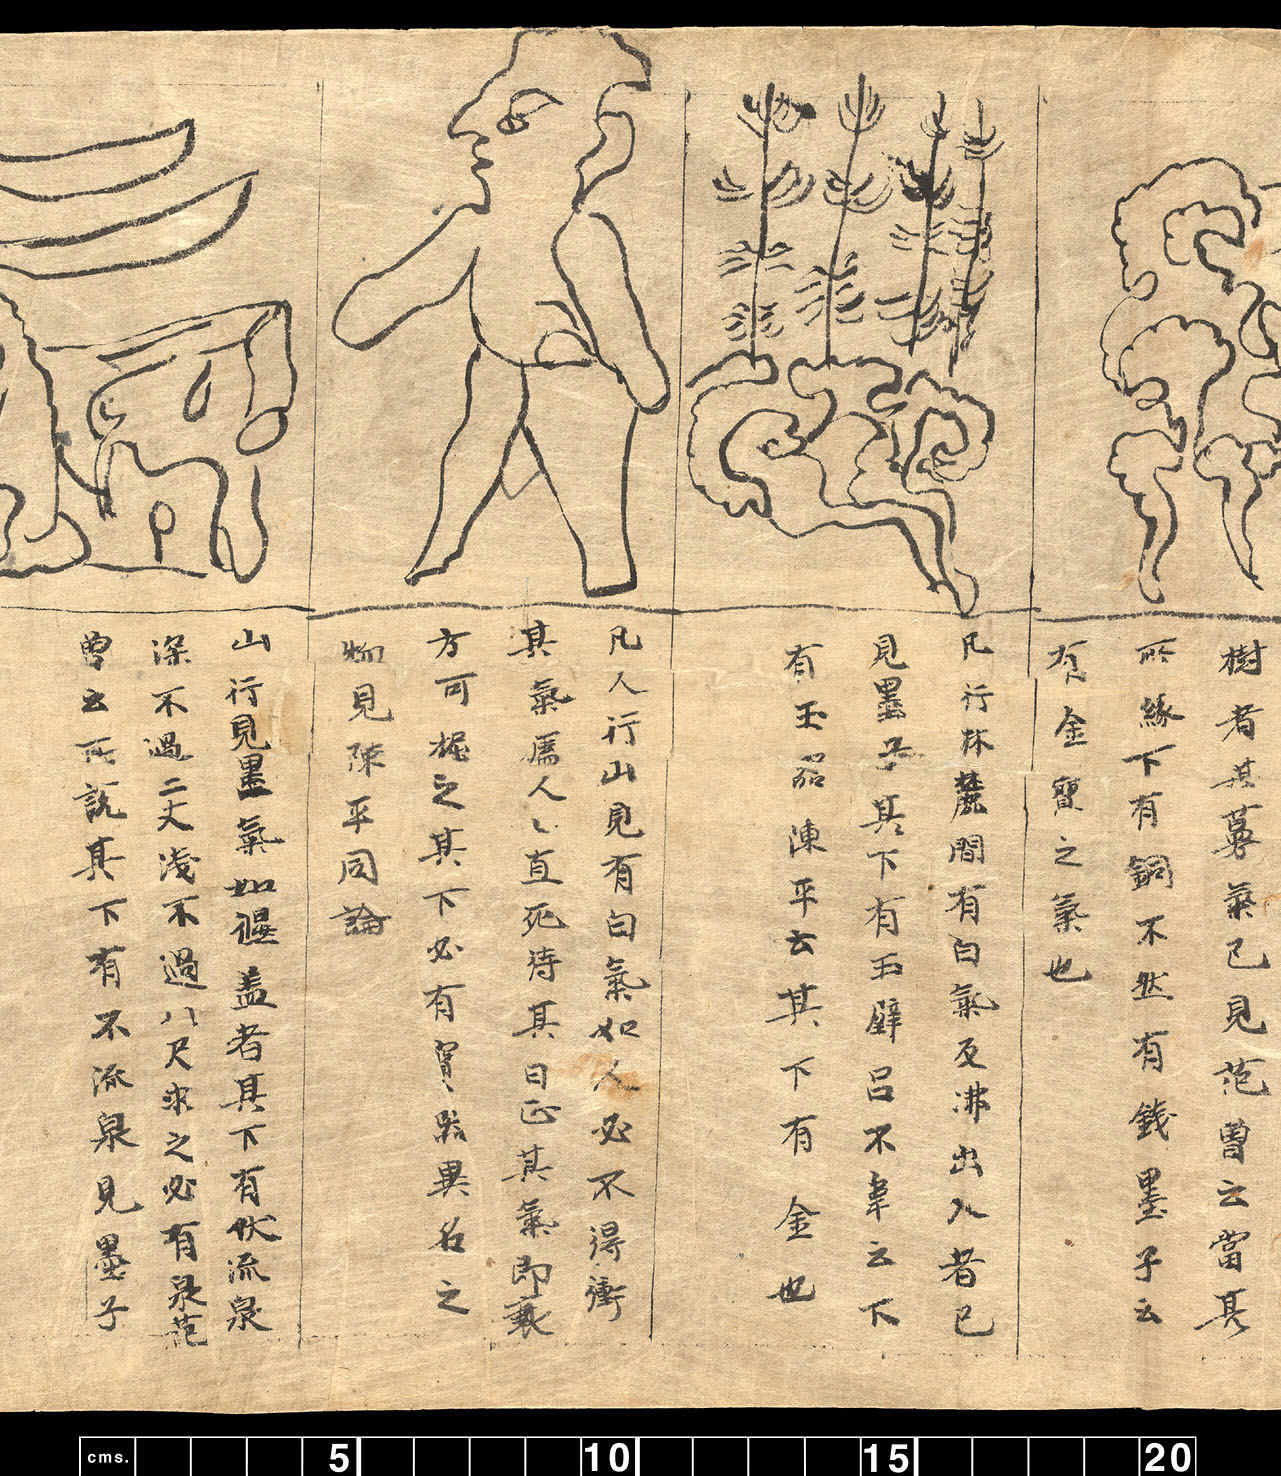 樹者其蒿氣已見范曾云當其
所緣下有銅不然有錢墨子云
有金寶之氣也
凡行林麓間有白氣及沸出入者已
見墨子其下有玉璧呂不韋云下
有玉器陳平云其下有金也
凡人行山見有白氣如人必不得衝
其氣厲人々直死待其日正其氣即衰
方可掘之其下必有寶器異名之
物見陳平同論
山行見墨氣如偃盖者其下有伏流泉
深不過二丈淺不過八尺求之必有泉范
曾云所說其下有不流泉見墨子
cms.
5
10
15
20